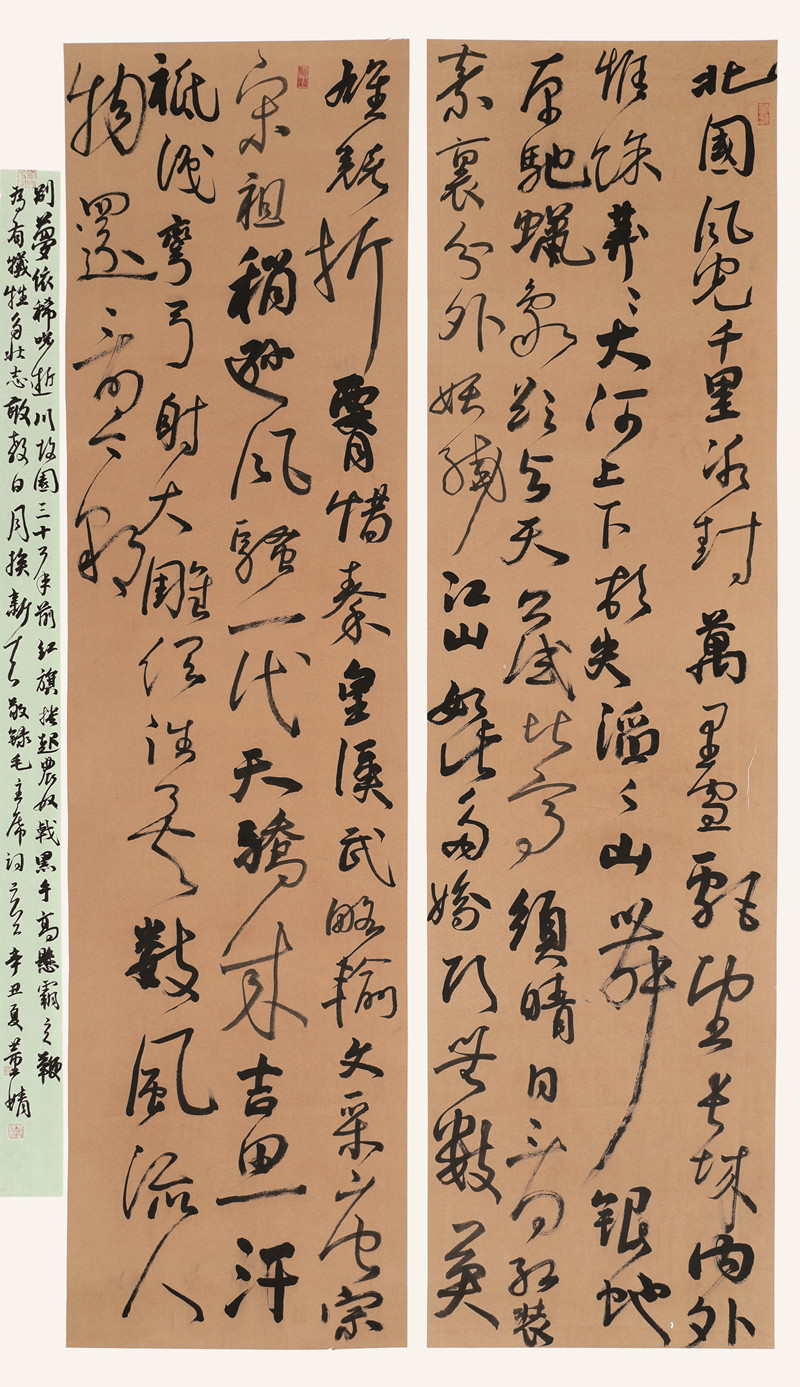 北國風光千里冰封萬里雪飄望長城內外
惟餘莽〻大河上下頓失滔〻山舞銀蛇
原馳蠟象欲與天公試比高須晴日看紅裝
素裹分外妖嬈江山如此多嬌引無數英
雄競折腰惜秦皇漢武略輸文采唐宗
宋祖稍遜風騷一代天驕成吉思汗
祗識彎弓射大雕俱往矣數風流人
物還看今朝
別夢依稀咒逝川故園三十二年前紅旗捲起農奴戟黑手高懸霸主鞭
為有犧牲多壯志敢教日月換新天敬錄毛主席詞二首辛丑夏董婧